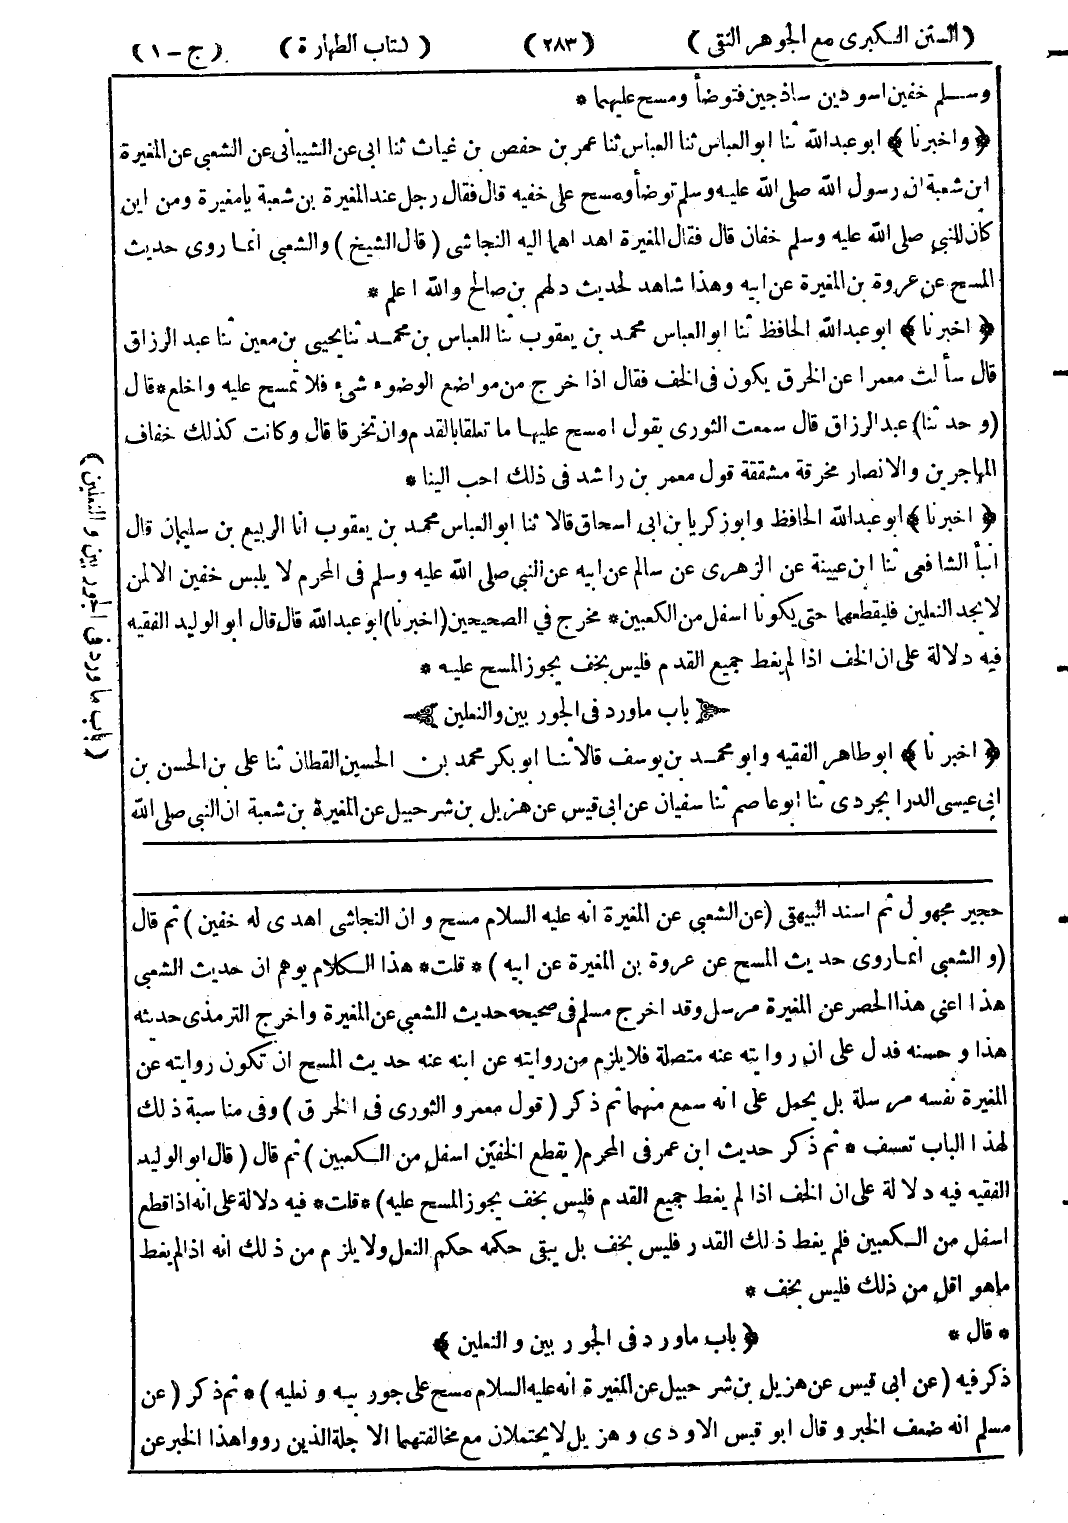 (السنن الكبرى مع الجوهر النقى) (٢٨٣) (كتاب الطهارة) (ج - ١)
وسلم خفين اسودين ساذجين فتوضأ ومسح عليهما *
﴿ واخبرنا ﴾ ابو عبد الله ثنا ابو العباس ثنا العباس ثنا عمر بن حفص بن غياث ثنا ابى عن الشيبانى عن الشعبى عن المغيرة
ابن شعبة ان رسول الله صلى الله عليه وسلم توضأ ومسح على خفيه قال فقال رجل عند المغيرة بن شعبة يا مغيرة ومن اين
كان للنبى صلى الله عليه وسلم خفان قال فقال المغيرة اهداهما اليه النجاشى (قال الشيخ) والشعبى انما روى حديث
المسح عن عروة بن المغيرة عن ابيه وهذا شاهد لحديث دلهم بن صالح والله اعلم *
﴿ اخبرنا ﴾ ابو عبد الله الحافظ ثنا ابو العباس محمد بن يعقوب ثنا العباس بن محمد ثنا يحيى بن معين ثنا عبد الرزاق
قال سألت معمرا عن الخرق يكون فى الخف فقال اذا خرج من مواضع الوضوء شىء فلا تمسح عليه واخلع * قال
(وحدثنا) عبد الرزاق قال سمعت الثورى يقول امسح عليها ما تعلقا بالقدم وان تخرقا قال وكانت كذلك خفاف
المهاجرين والانصار مخرقة مشققة قول معمر بن راشد فى ذلك احب الينا *
﴿ اخبرنا ﴾ ابو عبد الله الحافظ وابو زكريا بن ابى اسحاق قالا ثنا ابو العباس محمد بن يعقوب انا الربيع بن سليمان قال
انبأ الشافعى ثنا ابن عيينة عن الزهرى عن سالم عن ابيه عن النبى صلى الله عليه وسلم فى المحرم لا يلبس خفين الا لمن
لا يجد النعلين فليقطعهما حتى يكونا اسفل من الكعبين * مخرج في الصحيحين (اخبرنا) ابو عبد الله قال قال ابو الوليد الفقيه
فيه دلالة على ان الخف اذا لم يغط جميع القدم فليس بخف يجوز المسح عليه *
باب ماورد فى الجوربين والنعلين
﴿ اخبرنا ﴾ ابو طاهر الفقيه وابو محمد بن يوسف قالا ثنا ابو بكر محمد بن الحسين القطان ثنا على بن الحسن بن
ابى عيسى الدرابجردى ثنا ابو عاصم ثنا سفيان عن ابى قيس عن هزيل بن شرحبيل عن المغيرة بن شعبة ان النبى صلى الله
(باب ماورد فى الجوربين والنعلين)
حجير مجهول ثم اسند البيهقى (عن الشعبى عن المغيرة انه عليه السلام مسح وان النجاشى اهدى له خفين) ثم قال
(والشعبى انما روى حديث المسح عن عروة بن المغيرة عن ابيه) * قلت * هذا الكلام يوهم ان حديث الشعبى
هذا اعنى هذا الحصر عن المغيرة مرسل وقد اخرج مسلم فى صحيحه حديث الشعبى عن المغيرة واخرج الترمذى حديثه
هذا وحسنه فدل على ان روايته عنه متصلة فلا يلزم من روايته عن ابنه عنه حديث المسح ان تكون روايته عن
المغيرة نفسه مرسلة بل يحمل على انه سمع منهما ثم ذكر (قول معمر والثورى فى الخرق) وفى مناسبة ذلك
لهذا الباب تعسف * ثم ذكر حديث ابن عمر فى المحرم (يقطع الخفين اسفل من الكعبين) ثم قال (قال ابو الوليد
الفقيه فيه دلالة على ان الخف اذا لم يغط جميع القدم فليس بخف يجوز المسح عليه) * قلت * فيه دلالة على انه اذا قطع
اسفل من الكعبين فلم يغط ذلك القدر فليس بخف بل يبقى حكمه حكم النعل ولا يلزم من ذلك انه اذا لم يغط
ماهو اقل من ذلك فليس بخف *
* قال * ﴿ باب ماورد فى الجوربين والنعلين ﴾
ذكر فيه (عن ابى قيس عن هزيل بن شرحبيل عن المغيرة انه عليه السلام مسح على جوربيه ونعليه) * ثم ذكر (عن
مسلم انه ضعف الخبر وقال ابو قيس الاودى وهزيل لا يحتملان مع مخالفتهما الاجلة الذين رووا هذا الخبر عن